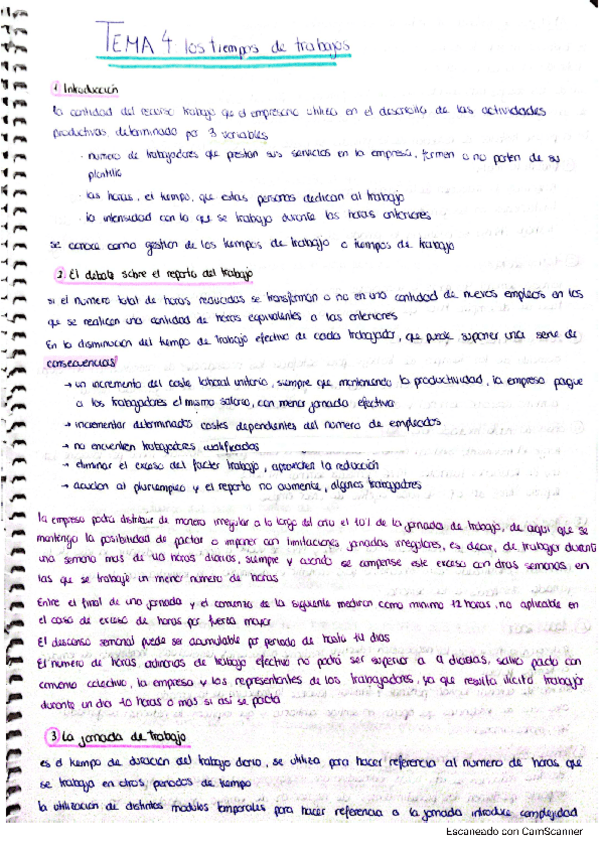 TEMA 4 los tiempos de trabajos
1 Introducción
la cantidad del recurso trabajo que el empresario utiliza en el desarrollo de las actividades
productivas, determinado por 3 variables
· numero de trabajadores que prestan sus servicios en la empresa, formen o no parten de su
plantilla
· las horas, el tiempo, que estas personas dedican al trabajo
· la intensidad con la que se trabaja durante las horas anteriores
se conoce como gestion de los tiempos de trabajo o tiempos de trabajo
2. El debate sobre el reparto del trabajo
si el numero total de horas reducidas se transforman o no en una cantidad de nuevos empleos en los
que se realicen una cantidad de horas equivalentes a las anteriores
En la disminución del tiempo de trabajo efectivo de cada trabajador, que puede suponer una serie de
consecuencias
→ un incremento del coste laboral unitario, siempre que manteniendo la productividad, la empresa pague
a los trabajadores el mismo salario, con menor jornada efectiva
→ incrementar determinados costes dependientes del numero de empleados
→ no encuentren trabajadores cualificados
→ eliminar el exceso del factor trabajo, aprovechen la reducción
→ acudan al pluriempleo y el reparto no aumente, algunos trabajadores
la empresa podrá distribuir de manera irregular a lo largo del año el 10% de la jornada de trabajo, de aqui que se
mantenga la posibilidad de pactar o imponer con limitaciones jornadas irregulares, es decir, de trabajar durante
una semana mas de 40 horas diarias, siempre y cuando se compense este exceso con otras semanas en
las que se trabaje un menor número de horas
Entre el final de una jornada y el comienzo de la siguiente mediran como minimo 12 horas, no aplicable en
el caso de exceso de horas por fuerza mayor
El descanso semanal puede ser acumulable por periodo de hasta 14 dias
El numero de horas ordinarias de trabajo efectivo no podrá ser superior a 9 diarias, salvo pacto con
convenio colectivo, la empresa y los representantes de los trabajadores, ya que resulta licito trabajar
durante un dia 10 horas o mas si asi se pacta
3 La jornada de trabajo
es el tiempo de duración del trabajo diario, se utiliza para hacer referencia al numero de horas que
se trabaja en otros periodos de tiempo
la utilización de distintos modulos temporales para hacer referencia a la jornada introduce complejidad
Escaneado con CamScanner